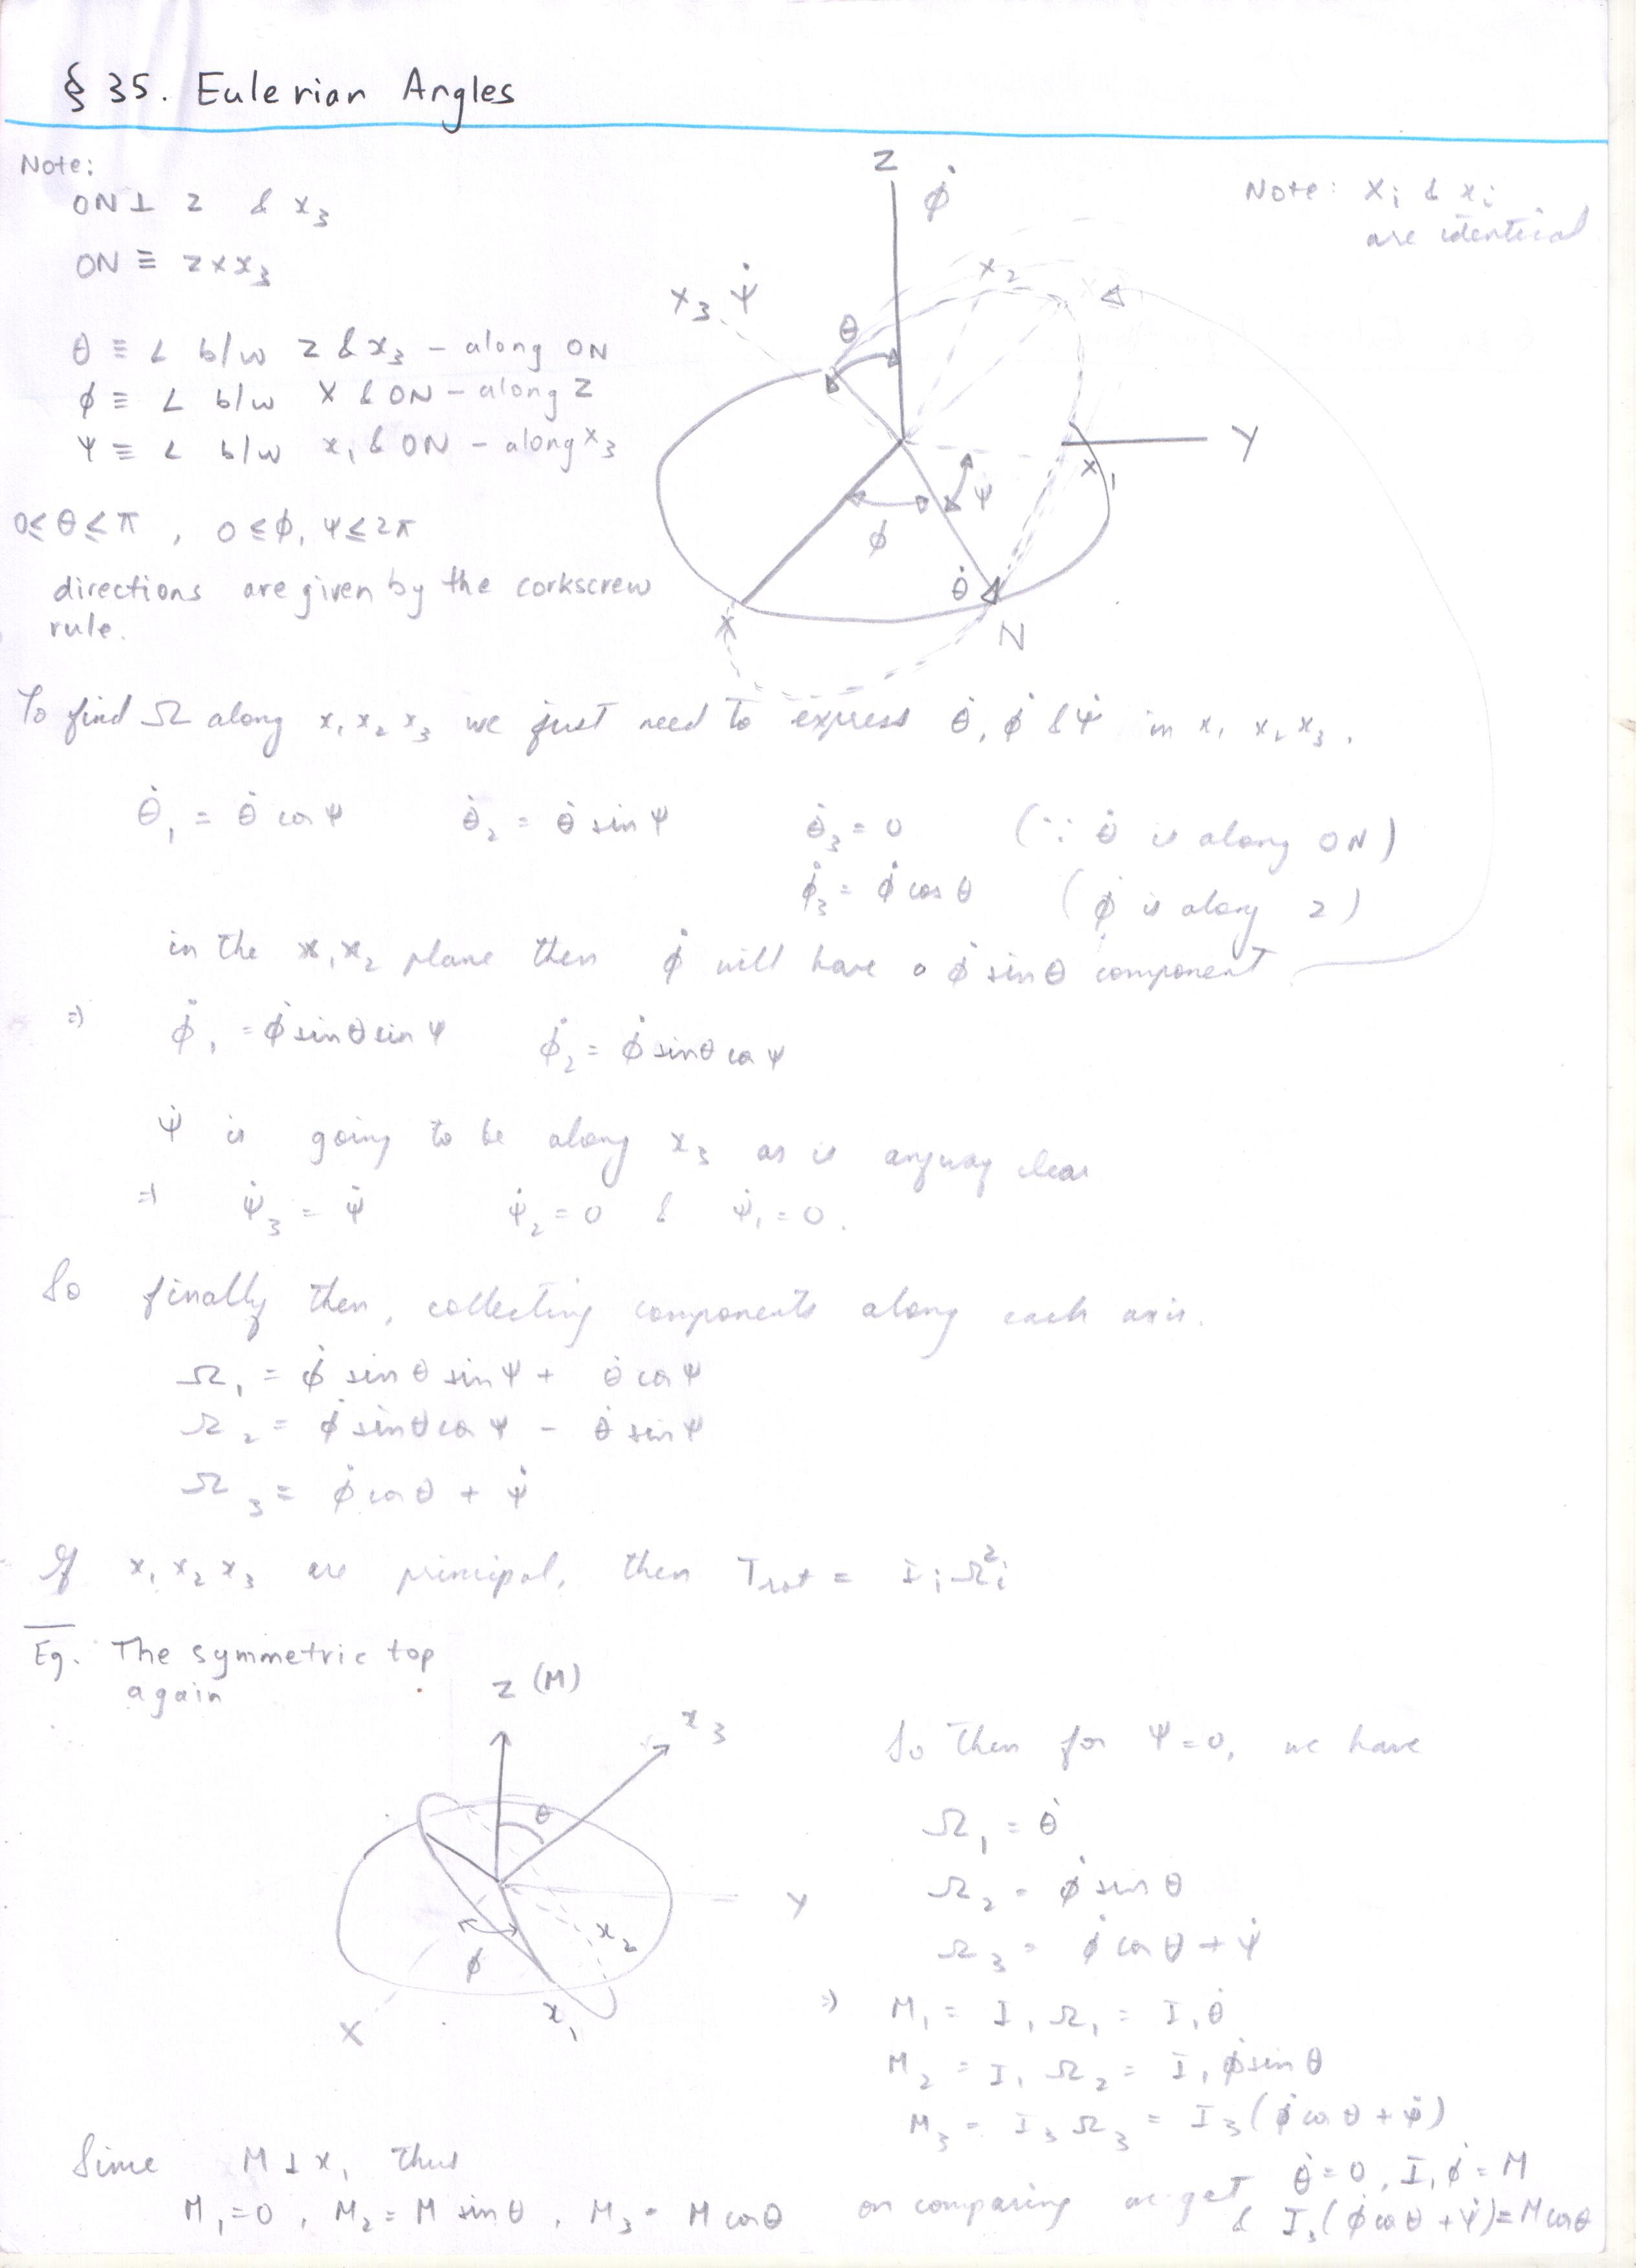 § 35. Eulerian Angles
Note:
ON ⊥ Z & x₃
ON ≡ Z × x₃
θ ≡ ∠ b/w Z & x₃ – along ON
ϕ ≡ ∠ b/w X & ON – along Z
Ψ ≡ ∠ b/w x₁ & ON – along x₃
0 ≤ θ ≤ π , 0 ≤ ϕ, Ψ ≤ 2π
directions are given by the corkscrew
rule.
Z
ϕ̇
Note: Xᵢ & xᵢ
are identical
x₃ Ψ̇
x₂
θ
Y
x₁
Ψ
ϕ
θ̇
X
N
To find Ω along x₁ x₂ x₃ we just need to express θ̇, ϕ̇ & Ψ̇ in x₁ x₂ x₃.
θ̇₁ = θ̇ cos Ψ θ̇₂ = θ̇ sin Ψ θ̇₃ = 0 (∵ θ̇ is along ON)
ϕ̇₃ = ϕ̇ cos θ (ϕ̇ is along Z)
in the x₁ x₂ plane then ϕ̇ will have a ϕ̇ sin θ component
⇒ ϕ̇₁ = ϕ̇ sin θ sin Ψ ϕ̇₂ = ϕ̇ sin θ cos Ψ
Ψ̇ is going to be along x₃ as is anyway clear
⇒ Ψ̇₃ = Ψ̇ Ψ̇₂ = 0 & Ψ̇₁ = 0.
So finally then, collecting components along each axis.
Ω₁ = ϕ̇ sin θ sin Ψ + θ̇ cos Ψ
Ω₂ = ϕ̇ sin θ cos Ψ – θ̇ sin Ψ
Ω₃ = ϕ̇ cos θ + Ψ̇
If x₁ x₂ x₃ are principal, then T_rot = IᵢΩᵢ²
Eg. The symmetric top
again
Z (M)
x₃
θ
Y
x₂
ϕ
x₁
X
So then for Ψ = 0, we have
Ω₁ = θ̇
Ω₂ = ϕ̇ sin θ
Ω₃ = ϕ̇ cos θ + Ψ̇
⇒ M₁ = I₁ Ω₁ = I₁ θ̇
M₂ = I₁ Ω₂ = I₁ ϕ̇ sin θ
M₃ = I₃ Ω₃ = I₃ (ϕ̇ cos θ + Ψ̇)
Since M ⊥ x₁ thus
M₁ = 0 , M₂ = M sin θ , M₃ = M cos θ
on comparing we get θ̇ = 0, I₁ ϕ̇ = M
& I₃ (ϕ̇ cos θ + Ψ̇) = M cos θ